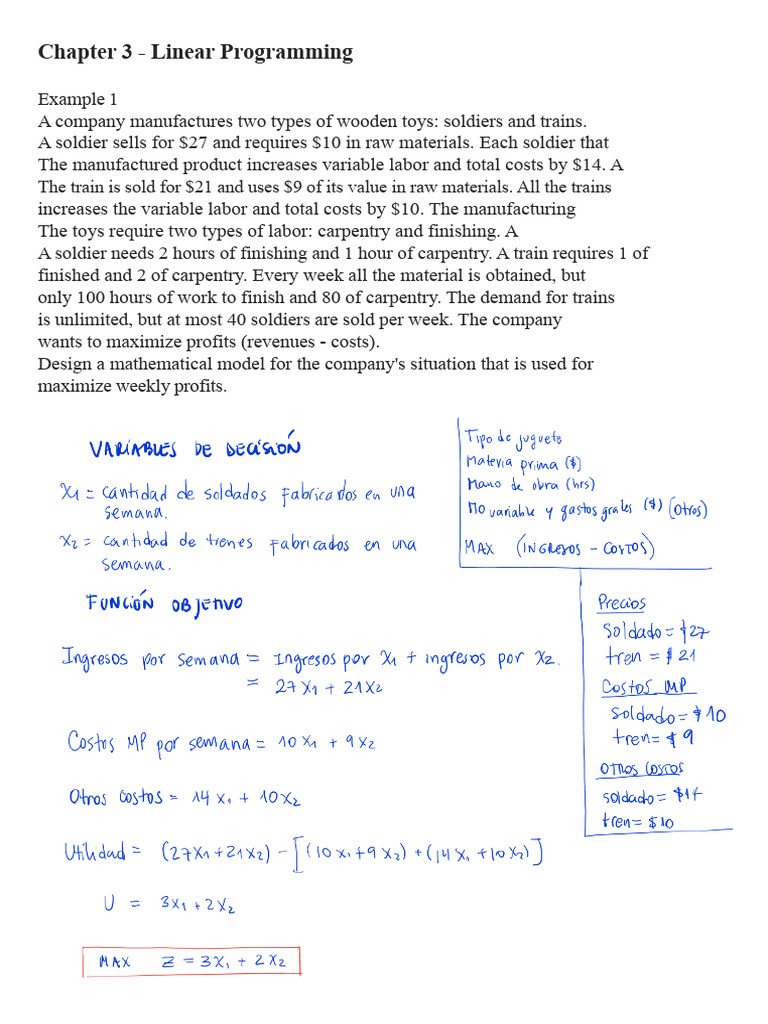 Chapter 3 - Linear Programming
Example 1
A company manufactures two types of wooden toys: soldiers and trains.
A soldier sells for $27 and requires $10 in raw materials. Each soldier that
The manufactured product increases variable labor and total costs by $14. A
The train is sold for $21 and uses $9 of its value in raw materials. All the trains
increases the variable labor and total costs by $10. The manufacturing
The toys require two types of labor: carpentry and finishing. A
A soldier needs 2 hours of finishing and 1 hour of carpentry. A train requires 1 of
finished and 2 of carpentry. Every week all the material is obtained, but
only 100 hours of work to finish and 80 of carpentry. The demand for trains
is unlimited, but at most 40 soldiers are sold per week. The company
wants to maximize profits (revenues - costs).
Design a mathematical model for the company's situation that is used for
maximize weekly profits.
VARIABLES DE DECISIÓN
x₁ = cantidad de soldados fabricados en una
semana.
x₂ = cantidad de trenes fabricados en una
semana.
Tipo de juguete
Materia prima ($)
Mano de obra (hrs)
Mo variable y gastos grales ($) (otros)
MAX (INGRESOS - COSTOS)
FUNCIÓN OBJETIVO
Ingresos por semana = ingresos por x₁ + ingresos por x₂.
= 27x₁ + 21x₂
Costos MP por semana = 10x₁ + 9x₂
Otros costos = 14x₁ + 10x₂
Utilidad = (27x₁+21x₂) - [(10x₁+9x₂) + (14x₁+10x₂)]
U = 3x₁+2x₂
MAX Z = 3x₁ + 2x₂
Precios
Soldado = $27
tren = $21
Costos MP
soldado = $10
tren = $9
OTROS COSTOS
soldado = $14
tren = $10